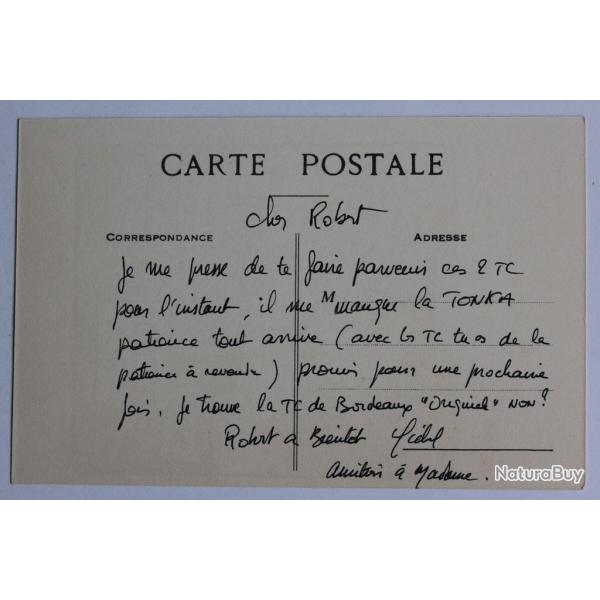 CARTE POSTALE
cher Robert
CORRESPONDANCE
ADRESSE
Je me presse de te faire parvenir ces 2 TC
pour l'instant, il me manque la TONKA
patience tout arrive (avec les TC tu as de la
patience à revendre) promis pour une prochaine
fois. Je trouve la TC de Bordeaux "Originale" NON?
Robert a Bientot
Amitiés à Madame.
NaturaBuy